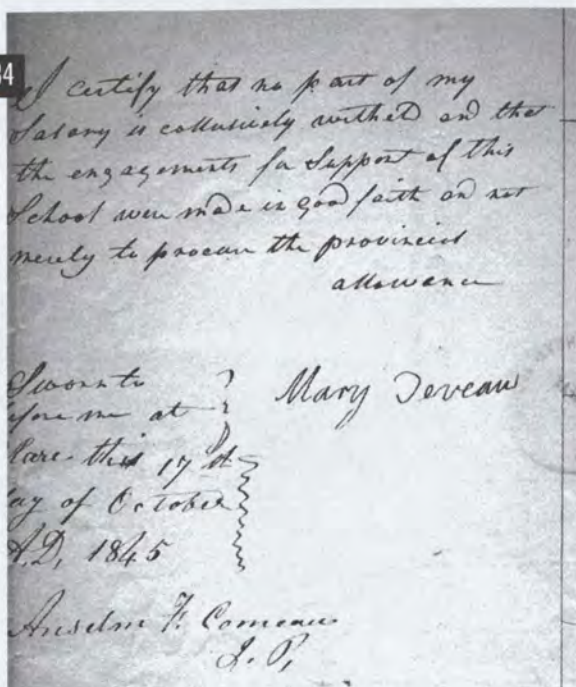 34
I certify that no part of my
Salary is collusively witheld and that
the engagements for Support of this
School were made in good faith and not
merely to procure the provincial
allowance
Sworn to
before me at
Clare this 17th
day of October
A.D, 1845
Mary Deveau
Anselm F. Comeau
J. P,